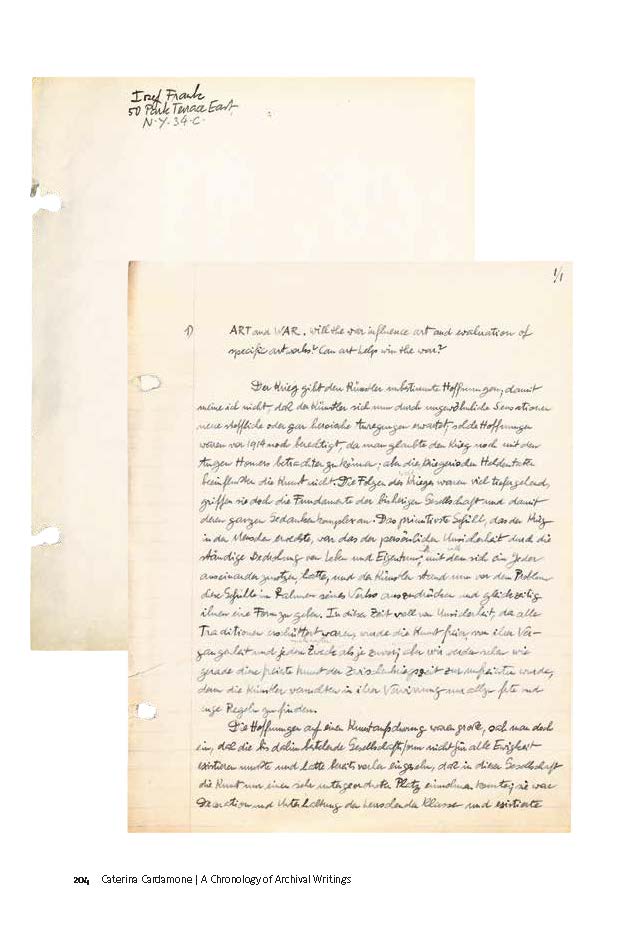 Josef Frank
50 Park Terrace East
N.Y. 34. C.
1/1
1) ART and WAR. Will the war influence art and evaluation of
specific art works? Can art help win the war?
Der Krieg gibt den Künstler unbestimmte Hoffnungen; damit
meine ich nicht, daß der Künstler sich nun durch ungewöhnliche Sensationen
neue stoffliche oder gar heroische Anregungen erwartet; solche Hoffnungen
waren vor 1914 noch berechtigt, da man glaubte den Krieg noch mit den
Augen Homers betrachten zu können; aber die kriegerischen Heldentaten
beeinflussten die Kunst nicht. Die Folgen des Krieges waren viel tiefergehend,
griffen sie doch die Fundamente der bisherigen Gesellschaft und damit
deren ganzen Gedankenkomplex an. Das primitivste Gefühl, das der Krieg
in den Menschen erweckte, war das der persönlichen Unsicherheit durch die
ständige Bedrohung von Leben und Eigentum, mit dem sich ein Jeder
auseinanderzusetzen hatte, und der Künstler stand nun vor dem Problem
diese Gefühle im Rahmen seines Werks auszudrücken und gleichzeitig
ihnen eine Form zu geben. In dieser Zeit voll von Unsicherheit, da alle
Traditionen erschüttert waren, wurde die Kunst freier von ihrer Ver-
gangenheit und jedem Zweck als je zuvor; aber wir werden sehen wie
gerade diese freieste Kunst der Zwischenkriegszeit zur unfreiesten wurde,
denn die Künstler versuchten in ihrer Verwirrung nur allzu feste und
enge Regeln zu finden.
Die Hoffnungen auf einen Kunstaufschwung waren große, sah man doch
ein, daß die bis dahin bestehende Gesellschaftsform nicht für alle Ewigkeit
existieren mußte und hatte bereits vorher eingesehn, daß in dieser Gesellschaft
die Kunst nur einen sehr untergeordneten Platz einnehmen konnte; sie war
Decoration und Unterhaltung der herrschenden Klasse und existierte
204 Caterina Cardamone | A Chronology of Archival Writings